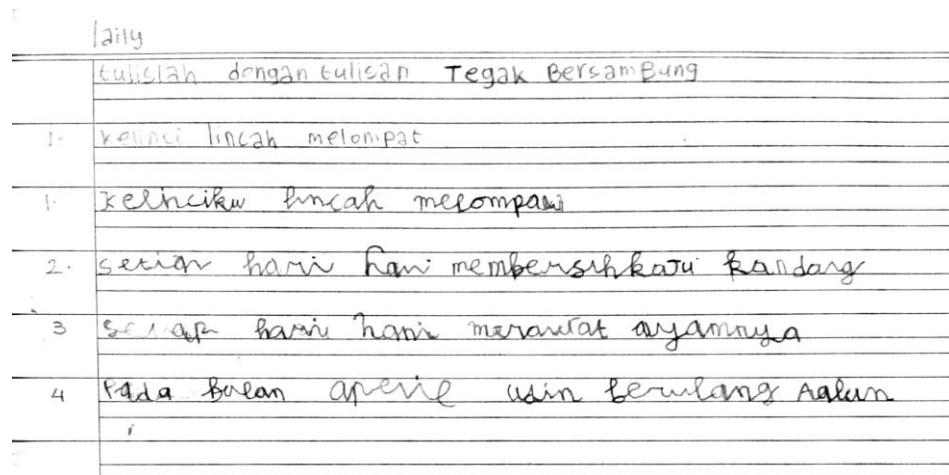 laily
tulislah dengan tulisan Tegak BersamBung
1. kelinci lincah melompat
1. kelinciku lincah melompat
2. setiap hari hani membersihkan kandang
3 setiap hari hani merawat ayamnya
4 Pada bulan aperil udin berulang